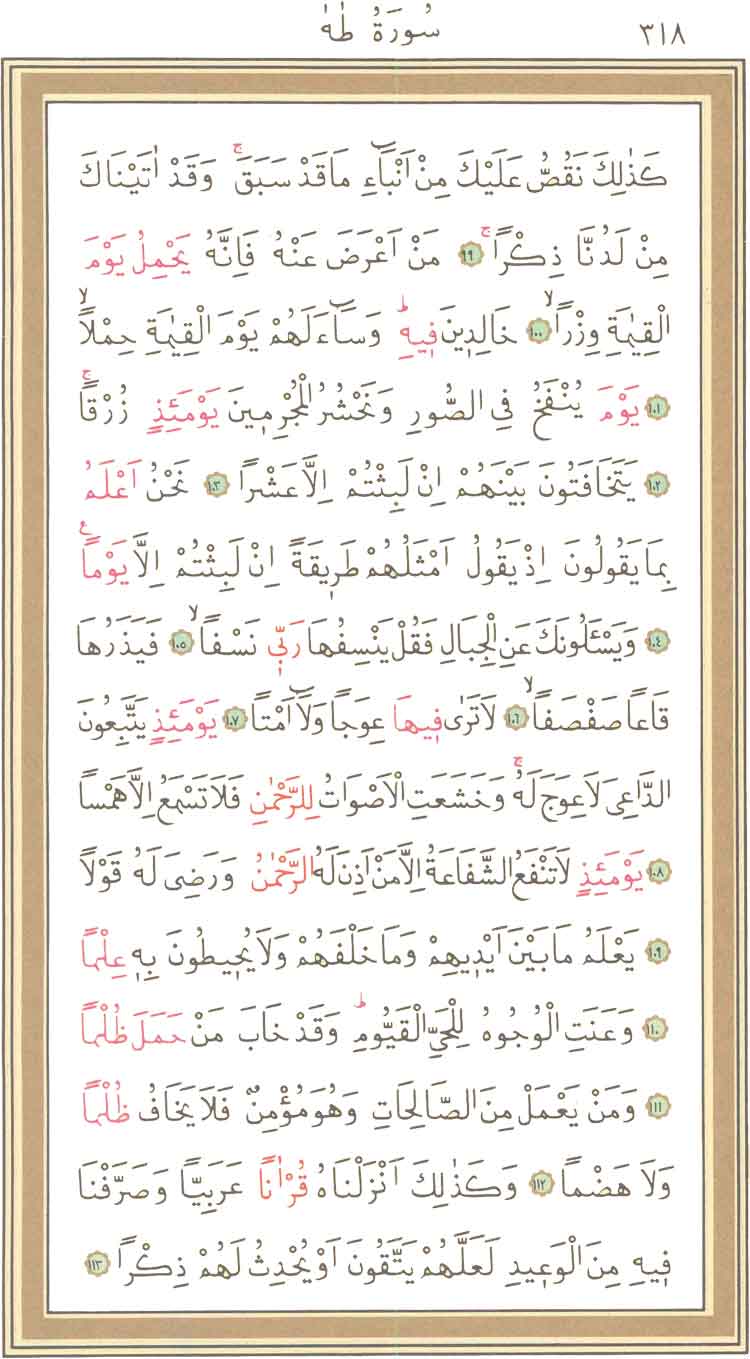 ٣١٨ سُورَةُ طٰهٰ
كَذٰلِكَ نَقُصُّ عَلَيْكَ مِنْ اَنْبَٓاءِ مَا قَدْ سَبَقَۚ وَقَدْ اٰتَيْنَاكَ
مِنْ لَدُنَّا ذِكْرًاۚ ﴿٩٩﴾ مَنْ اَعْرَضَ عَنْهُ فَاِنَّهُ يَحْمِلُ يَوْمَ
الْقِيٰمَةِ وِزْرًاۙ ﴿١٠٠﴾ خَالِد۪ينَ ف۪يهِۜ وَسَٓاءَ لَهُمْ يَوْمَ الْقِيٰمَةِ حِمْلًاۙ
﴿١٠١﴾ يَوْمَ يُنْفَخُ فِي الصُّورِ وَنَحْشُرُ الْمُجْرِم۪ينَ يَوْمَئِذٍ زُرْقًاۚ
﴿١٠٢﴾ يَتَخَافَتُونَ بَيْنَهُمْ اِنْ لَبِثْتُمْ اِلَّا عَشْرًا ﴿١٠٣﴾ نَحْنُ اَعْلَمُ
بِمَا يَقُولُونَ اِذْ يَقُولُ اَمْثَلُهُمْ طَر۪يقَةً اِنْ لَبِثْتُمْ اِلَّا يَوْمًاع
﴿١٠٤﴾ وَيَسْـَٔلُونَكَ عَنِ الْجِبَالِ فَقُلْ يَنْسِفُهَا رَبّ۪ي نَسْفًاۙ ﴿١٠٥﴾ فَيَذَرُهَا
قَاعًا صَفْصَفًاۙ ﴿١٠٦﴾ لَا تَرٰى ف۪يهَا عِوَجًا وَلَٓا اَمْتًا ﴿١٠٧﴾ يَوْمَئِذٍ يَتَّبِعُونَ
الدَّاعِيَ لَا عِوَجَ لَهُۚ وَخَشَعَتِ الْاَصْوَاتُ لِلرَّحْمٰنِ فَلَا تَسْمَعُ اِلَّا هَمْسًا
﴿١٠٨﴾ يَوْمَئِذٍ لَا تَنْفَعُ الشَّفَاعَةُ اِلَّا مَنْ اَذِنَ لَهُ الرَّحْمٰنُ وَرَضِيَ لَهُ قَوْلًا
﴿١٠٩﴾ يَعْلَمُ مَا بَيْنَ اَيْد۪يهِمْ وَمَا خَلْفَهُمْ وَلَا يُح۪يطُونَ بِه۪ عِلْمًا
﴿١١٠﴾ وَعَنَتِ الْوُجُوهُ لِلْحَيِّ الْقَيُّومِۜ وَقَدْ خَابَ مَنْ حَمَلَ ظُلْمًا
﴿١١١﴾ وَمَنْ يَعْمَلْ مِنَ الصَّالِحَاتِ وَهُوَ مُؤْمِنٌ فَلَا يَخَافُ ظُلْمًا
وَلَا هَضْمًا ﴿١١٢﴾ وَكَذٰلِكَ اَنْزَلْنَاهُ قُرْاٰنًا عَرَبِيًّا وَصَرَّفْنَا
ف۪يهِ مِنَ الْوَع۪يدِ لَعَلَّهُمْ يَتَّقُونَ اَوْ يُحْدِثُ لَهُمْ ذِكْرًا ﴿١١٣﴾